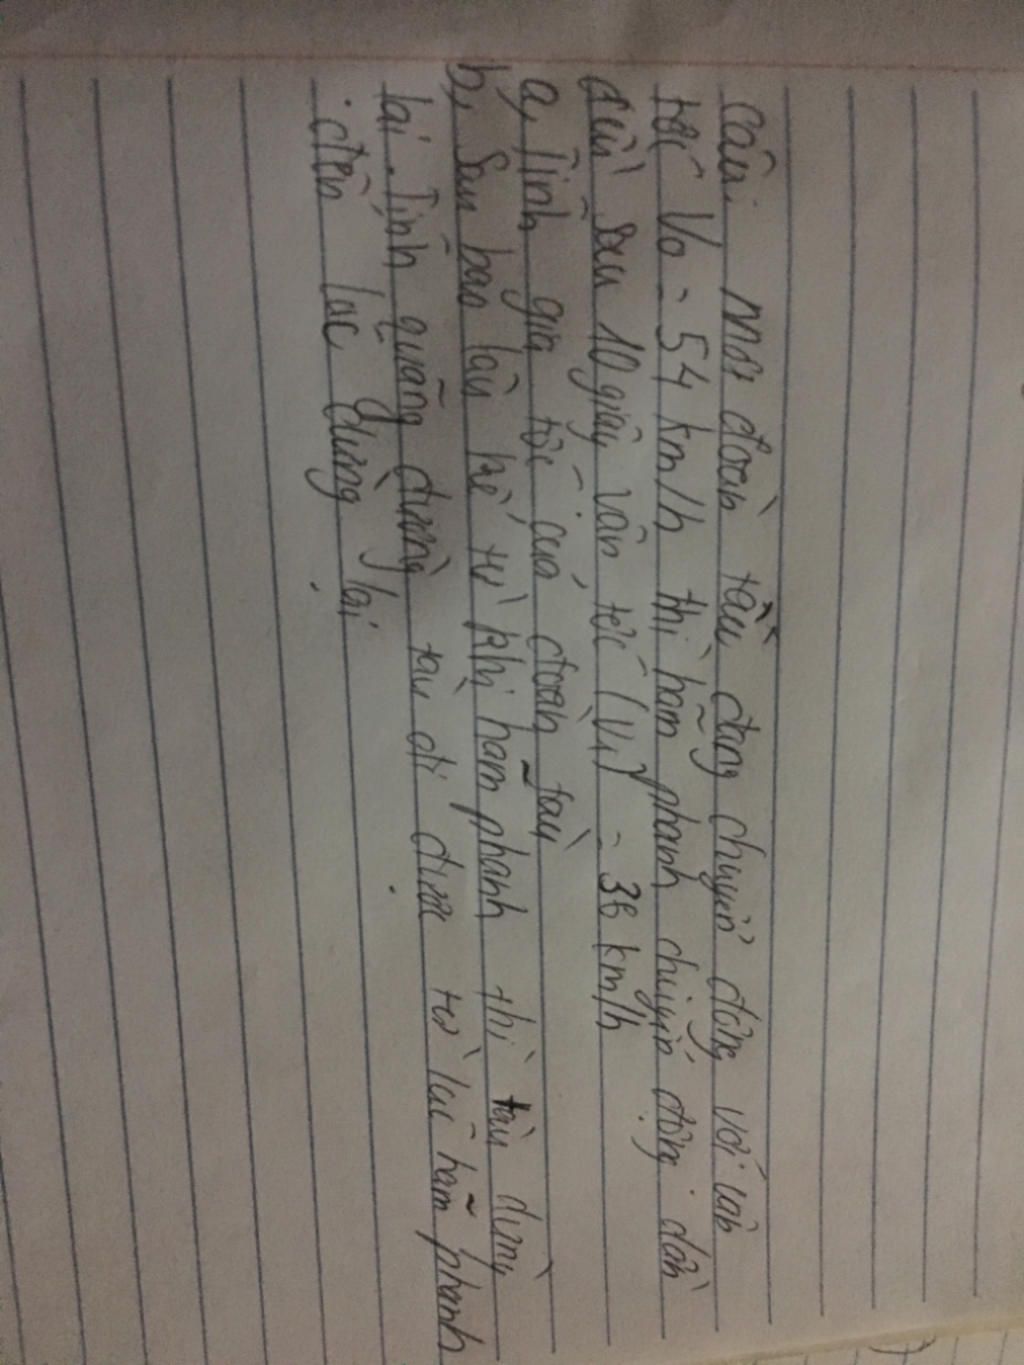 Câu: Một đoàn tầu đang chuyển động với vận
tốc V₀ = 54 km/h thì hãm phanh chuyển động dần
đều sau 10 giây vận tốc (V₁) = 36 km/h
a, Tính gia tốc của đoàn tàu
b, Sau bao lâu kể từ khi hãm phanh thì tàu dừng
lại. Tính quãng đường tàu đi được từ lúc hãm phanh
đến lúc dừng lại